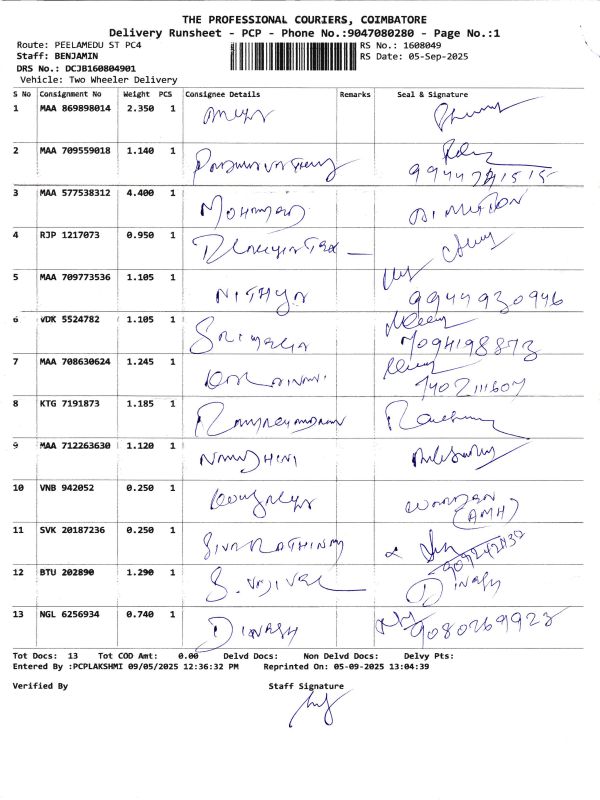 THE PROFESSIONAL COURIERS, COIMBATORE
Delivery Runsheet - PCP - Phone No.:9047080280 - Page No.:1
Route: PEELAMEDU ST PC4 RS No.: 1608049
Staff: BENJAMIN RS Date: 05-Sep-2025
DRS No.: DCJB160804901
Vehicle: Two Wheeler Delivery
S No Consignment No Weight PCS Consignee Details Remarks Seal & Signature
1 MAA 869898014 2.350 1
2 MAA 709559018 1.140 1
3 MAA 577538312 4.400 1 MOHAMED
4 RJP 1217073 0.950 1
5 MAA 709773536 1.105 1 NITHYA 9944930946
6 VDK 5524782 1.105 1 7094198873
7 MAA 708630624 1.245 1 7402111607
8 KTG 7191873 1.185 1 RAMACHANDRAN
9 MAA 712263630 1.120 1 NANDHINI
10 VNB 942052 0.250 1 WARDEN
(AMH)
11 SVK 20187236 0.250 1 SIVARATHINAM
12 BTU 202890 1.290 1 DINESH
13 NGL 6256934 0.740 1 DINESH 9080269923
Tot Docs: 13 Tot COD Amt: 0.00 Delvd Docs: Non Delvd Docs: Delvy Pts:
Entered By :PCPLAKSHMI 09/05/2025 12:36:32 PM Reprinted On: 05-09-2025 13:04:39
Verified By Staff Signature